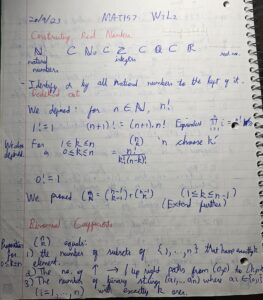 20/9/23 MAT157 W2L2
Constructing Real Numbers
ℕ ⊂ ℕ₀ ⊂ ℤ ⊂ ℚ ⊂ ℝ
natural numbers integers
- Identify α by all rational numbers to the left of it.
We defined: for n ∈ ℕ, n!
1! = 1 (n+1)! = (n+1).n! Equivalent
We also defined For 1≤k≤n (n k) 'n choose k'
0≤k≤n = n!/k!(n-k)!
0! = 1
We proved (n k) = (n-1 k-1) + (n-1 k) (1≤k≤n-1)
(Extend further)
Binomial Coefficients
Proposition for 0≤k≤n (n k) equals:
1) the number of subsets of {1,...,n} that have exactly k
element.
2) The no. of ↑ → / up right paths from (0,0) to
3) The number of binary strings (a₁,...,aₙ) where aᵢ ∈ {0,1}
(i=1,...,n) with exactly k ones.